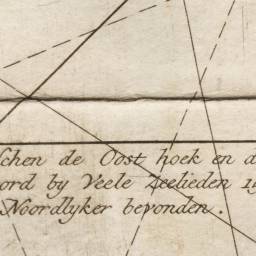 schen de Oost hoek en d
oord by Veele Zeelieden 1
Noordlyker bevonden.